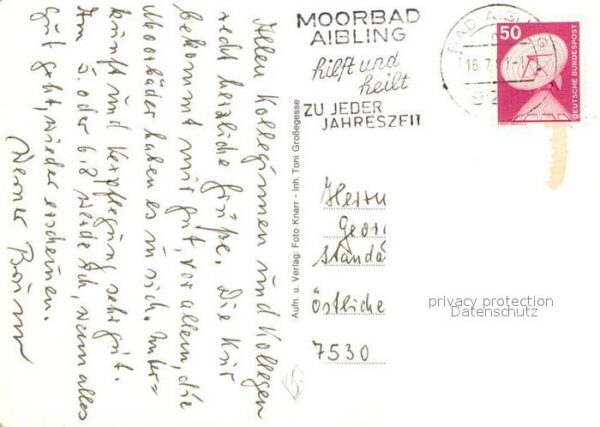 Allen Kolleginnen und Kollegen
recht herzliche Grüße. Die Kur
bekommt mir gut, vor allem, die
Moorbäder haben es in sich. Unter=
kunft und Verpflegung sehr gut.
Am 5. oder 6.8 werde ich, wenn alles
gut geht, wieder erscheinen.
Werner
Aufn. u. Verlag: Foto Knarr - Inh. Toni Großegesse
MOORBAD
AIBLING
hilft und
heilt
ZU JEDER
JAHRESZEIT
BAD AIBLING
16.7.
50
DEUTSCHE BUNDESPOST
Herrn
Georg
Standa
östliche
7530
privacy protection
Datenschutz